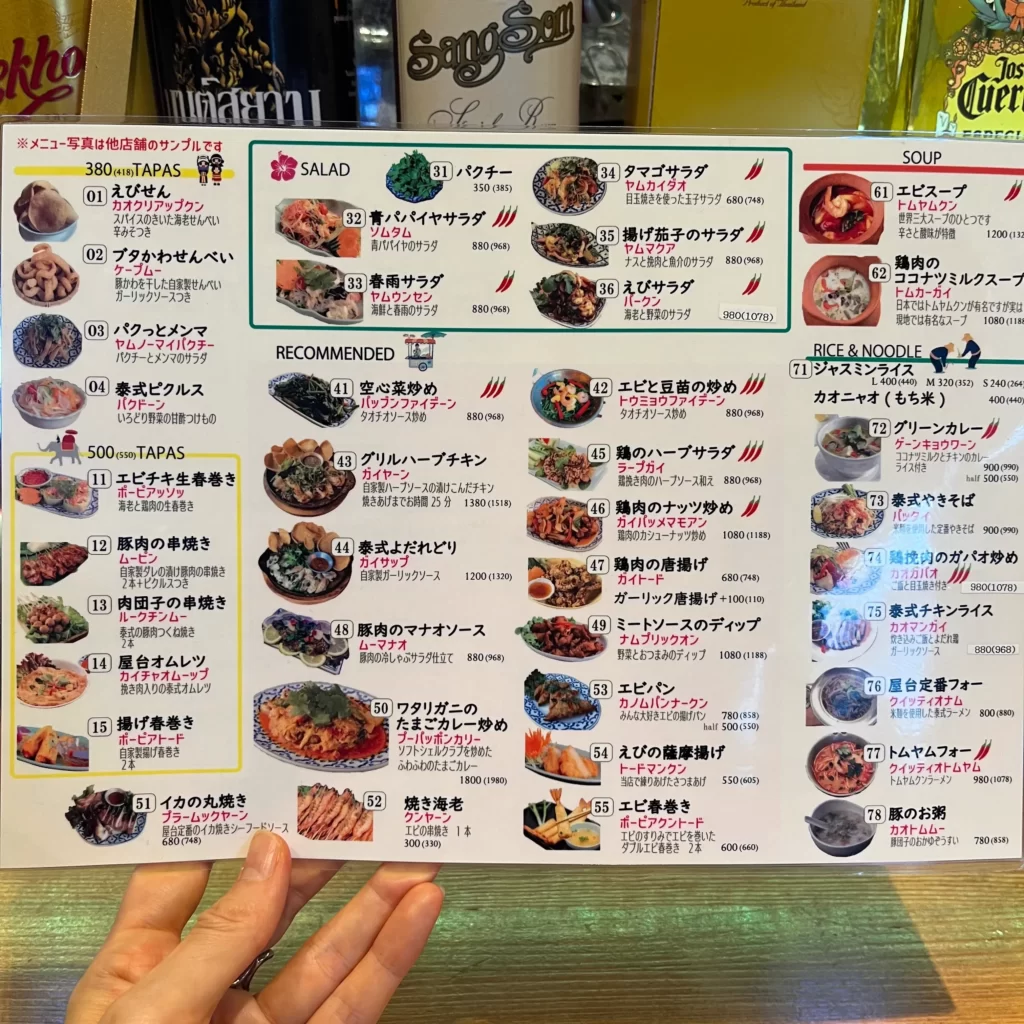 ekho
มนต์สยาม
SangSom
Product of Thailand
Jos
Cuer
ESPECI
※メニュー写真は他店舗のサンプルです
380(418)TAPAS
01 えびせん
カオクリアップクン
スパイスのきいた海老せんべい
辛みそつき
02 ブタかわせんべい
ケープムー
豚かわを干した自家製せんべい
ガーリックソースつき
03 パクっとメンマ
ヤムノーマイパクチー
パクチーとメンマのサラダ
04 泰式ピクルス
パクドーン
いろどり野菜の甘酢つけもの
500(550)TAPAS
11 エビチキ生春巻き
ポーピアッソッ
海老と鶏肉の生春巻き
12 豚肉の串焼き
ムーピン
自家製ダレの漬け豚肉の串焼き
2本+ピクルスつき
13 肉団子の串焼き
ルークチンムー
泰式の豚肉つくね焼き
2本
14 屋台オムレツ
カイチャオムーップ
挽き肉入りの泰式オムレツ
15 揚げ春巻き
ポーピアトード
自家製揚げ春巻き
2本
SALAD
31 パクチー
350(385)
32 青パパイヤサラダ
ソムタム
青パパイヤのサラダ 880(968)
33 春雨サラダ
ヤムウンセン
海鮮と春雨のサラダ 880(968)
34 タマゴサラダ
ヤムカイダオ
目玉焼きを使った玉子サラダ 680(748)
35 揚げ茄子のサラダ
ヤムマクア
ナスと挽肉と魚介のサラダ 880(968)
36 えびサラダ
パークン
海老と野菜のサラダ 980(1078)
RECOMMENDED
41 空心菜炒め
パップンファイデーン
タオチオソース炒め 880(968)
43 グリルハーブチキン
ガイヤーン
自家製ハーブソースの漬けこんだチキン
焼きあげまでお時間25分 1380(1518)
44 泰式よだれどり
ガイサップ
自家製ガーリックソース 1200(1320)
48 豚肉のマナオソース
ムーマナオ
豚肉の冷しゃぶサラダ仕立て 880(968)
50 ワタリガニの
たまごカレー炒め
プーパッポンカリー
ソフトシェルクラブを炒めた
ふわふわのたまごカレー
1800(1980)
51 イカの丸焼き
プラームックヤーン
屋台定番のイカ焼きシーフードソース
680(748)
52 焼き海老
クンヤーン
エビの串焼き 1本
300(330)
42 エビと豆苗の炒め
トウミョウファイデーン
タオチオソース炒め 880(968)
45 鶏のハーブサラダ
ラープガイ
鶏挽き肉のハーブソース和え 880(968)
46 鶏肉のナッツ炒め
ガイパッメマモアン
鶏肉のカシューナッツ炒め 1080(1188)
47 鶏肉の唐揚げ
ガイトード 680(748)
ガーリック唐揚げ +100(110)
49 ミートソースのディップ
ナムプリックオン
野菜とおつまみのディップ 1080(1188)
53 エビパン
カノムパンナークン
みんな大好きエビの揚げパン 780(858)
half 500(550)
54 えびの薩摩揚げ
トードマンクン
当店で練りあげたさつまあげ 550(605)
55 エビ春巻き
ポーピアクントード
エビのすりみでエビを巻いた
ダブルエビ春巻き 2本 600(660)
SOUP
61 エビスープ
トムヤムクン
世界三大スープのひとつです
辛さと酸味が特徴 1200(132
62 鶏肉の
ココナツミルクスープ
トムカーガイ
日本ではトムヤムクンが有名ですが実は
現地では有名なスープ 1080(1188
RICE & NOODLE
71 ジャスミンライス
L 400(440) M 320(352) S 240(264)
カオニャオ(もち米) 400(440)
72 グリーンカレー
ゲーンキョウワーン
ココナツミルクとチキンのカレー
ライス付き 900(990)
half 500(550)
73 泰式やきそば
パッタイ
米麺を使用した定番やきそば 900(990)
74 鶏挽肉のガパオ炒め
カオガパオ
ご飯と目玉焼き付き 980(1078)
75 泰式チキンライス
カオマンガイ
炊き込みご飯とよだれ鶏
ガーリックソース 880(968)
76 屋台定番フォー
クイッティオナム
米麺を使用した泰式ラーメン 800(880)
77 トムヤムフォー
クイッティオトムヤム
トムヤムクンラーメン 980(1078)
78 豚のお粥
カオトムムー
豚団子のおかゆぞうすい 780(858)